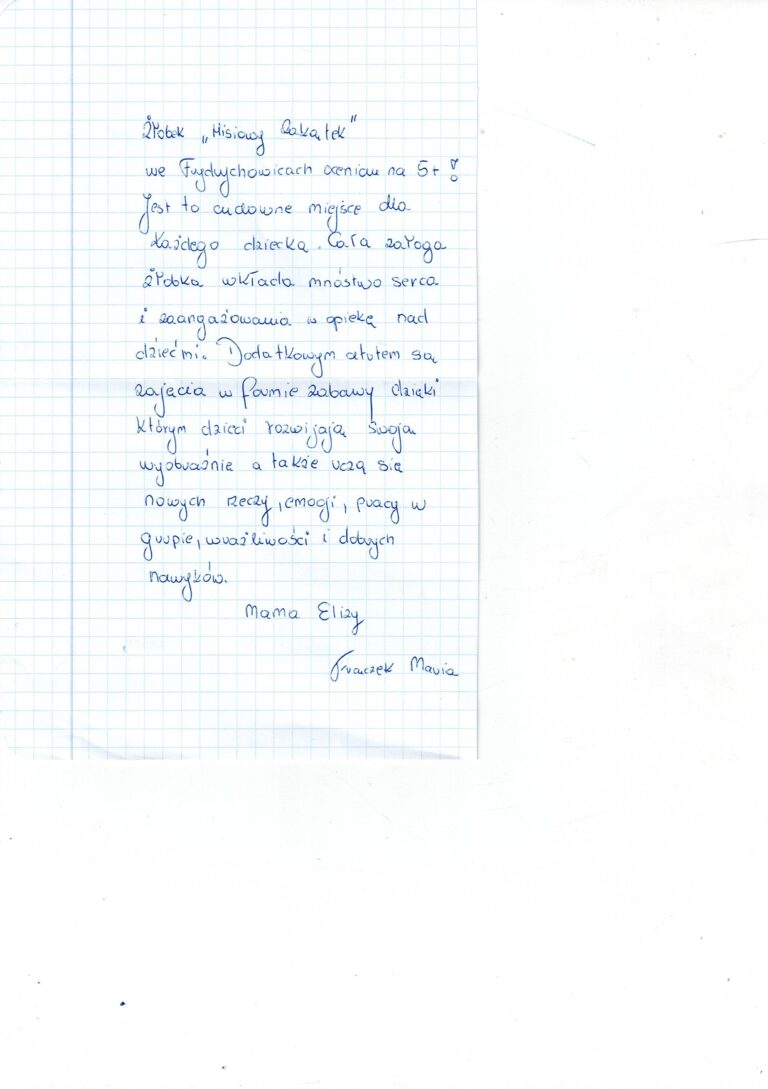 Żłobek „Misiowy Zakątek"
we Frydrychowicach oceniam na 5+!
Jest to cudowne miejsce dla
każdego dziecka. Cała załoga
żłobka wkłada mnóstwo serca
i zaangażowania w opiekę nad
dziećmi. Dodatkowym atutem są
zajęcia w formie zabawy dzięki
którym dzieci rozwijają swoja
wyobraźnie a także uczą się
nowych rzeczy, emocji, pracy w
grupie, wrażliwości i dobrych
nawyków.
Mama Elizy
Maria